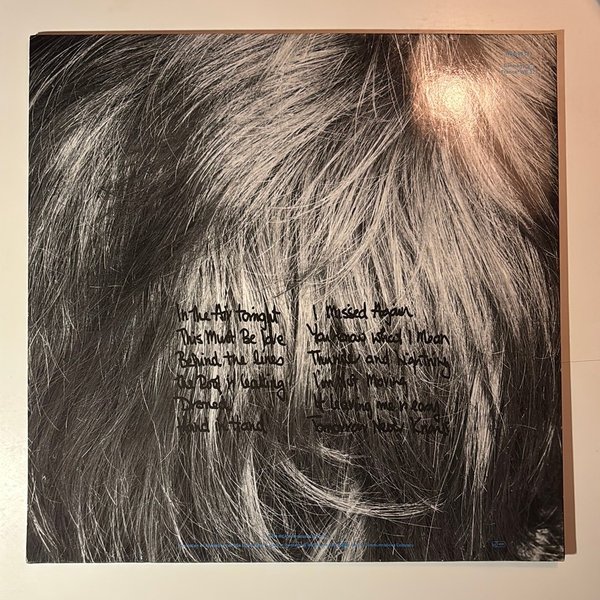 In the Air tonight
This Must Be love
Behind the lines
the Roof is leaking
Droned
Hand in Hand
I Missed Again
You Know What I Mean
Thunder and Lightning
I'm Not Moving
If leaving me is easy
Tomorrow Never Knows